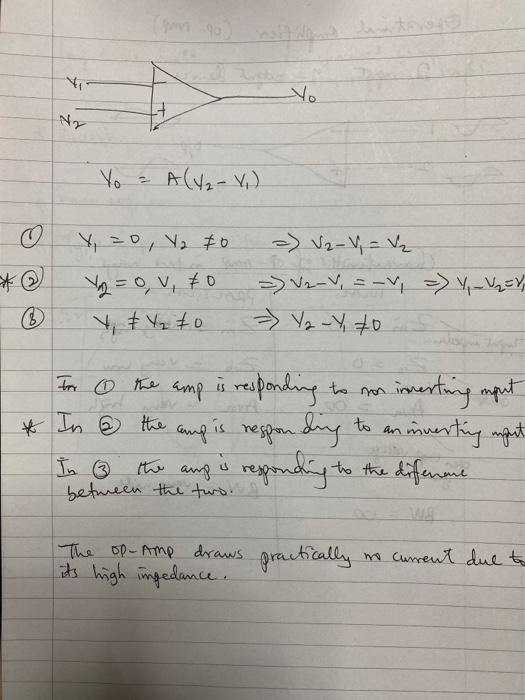 V1
-
+
V2
Vo
Vo = A(V2 - V1)
① V1 = 0, V2 ≠ 0 => V2-V1 = V2
* ② V2 = 0, V1 ≠ 0 => V2-V1 = -V1 => V1-V2=V1
③ V1 ≠ V2 ≠ 0 => V2-V1 ≠ 0
In ① the amp is responding to non inverting input
* In ② the amp is respon ding to an inverting input
In ③ the amp is responding to the difference
between the two.
The OP-AMP draws practically no current due to
its high impedance.